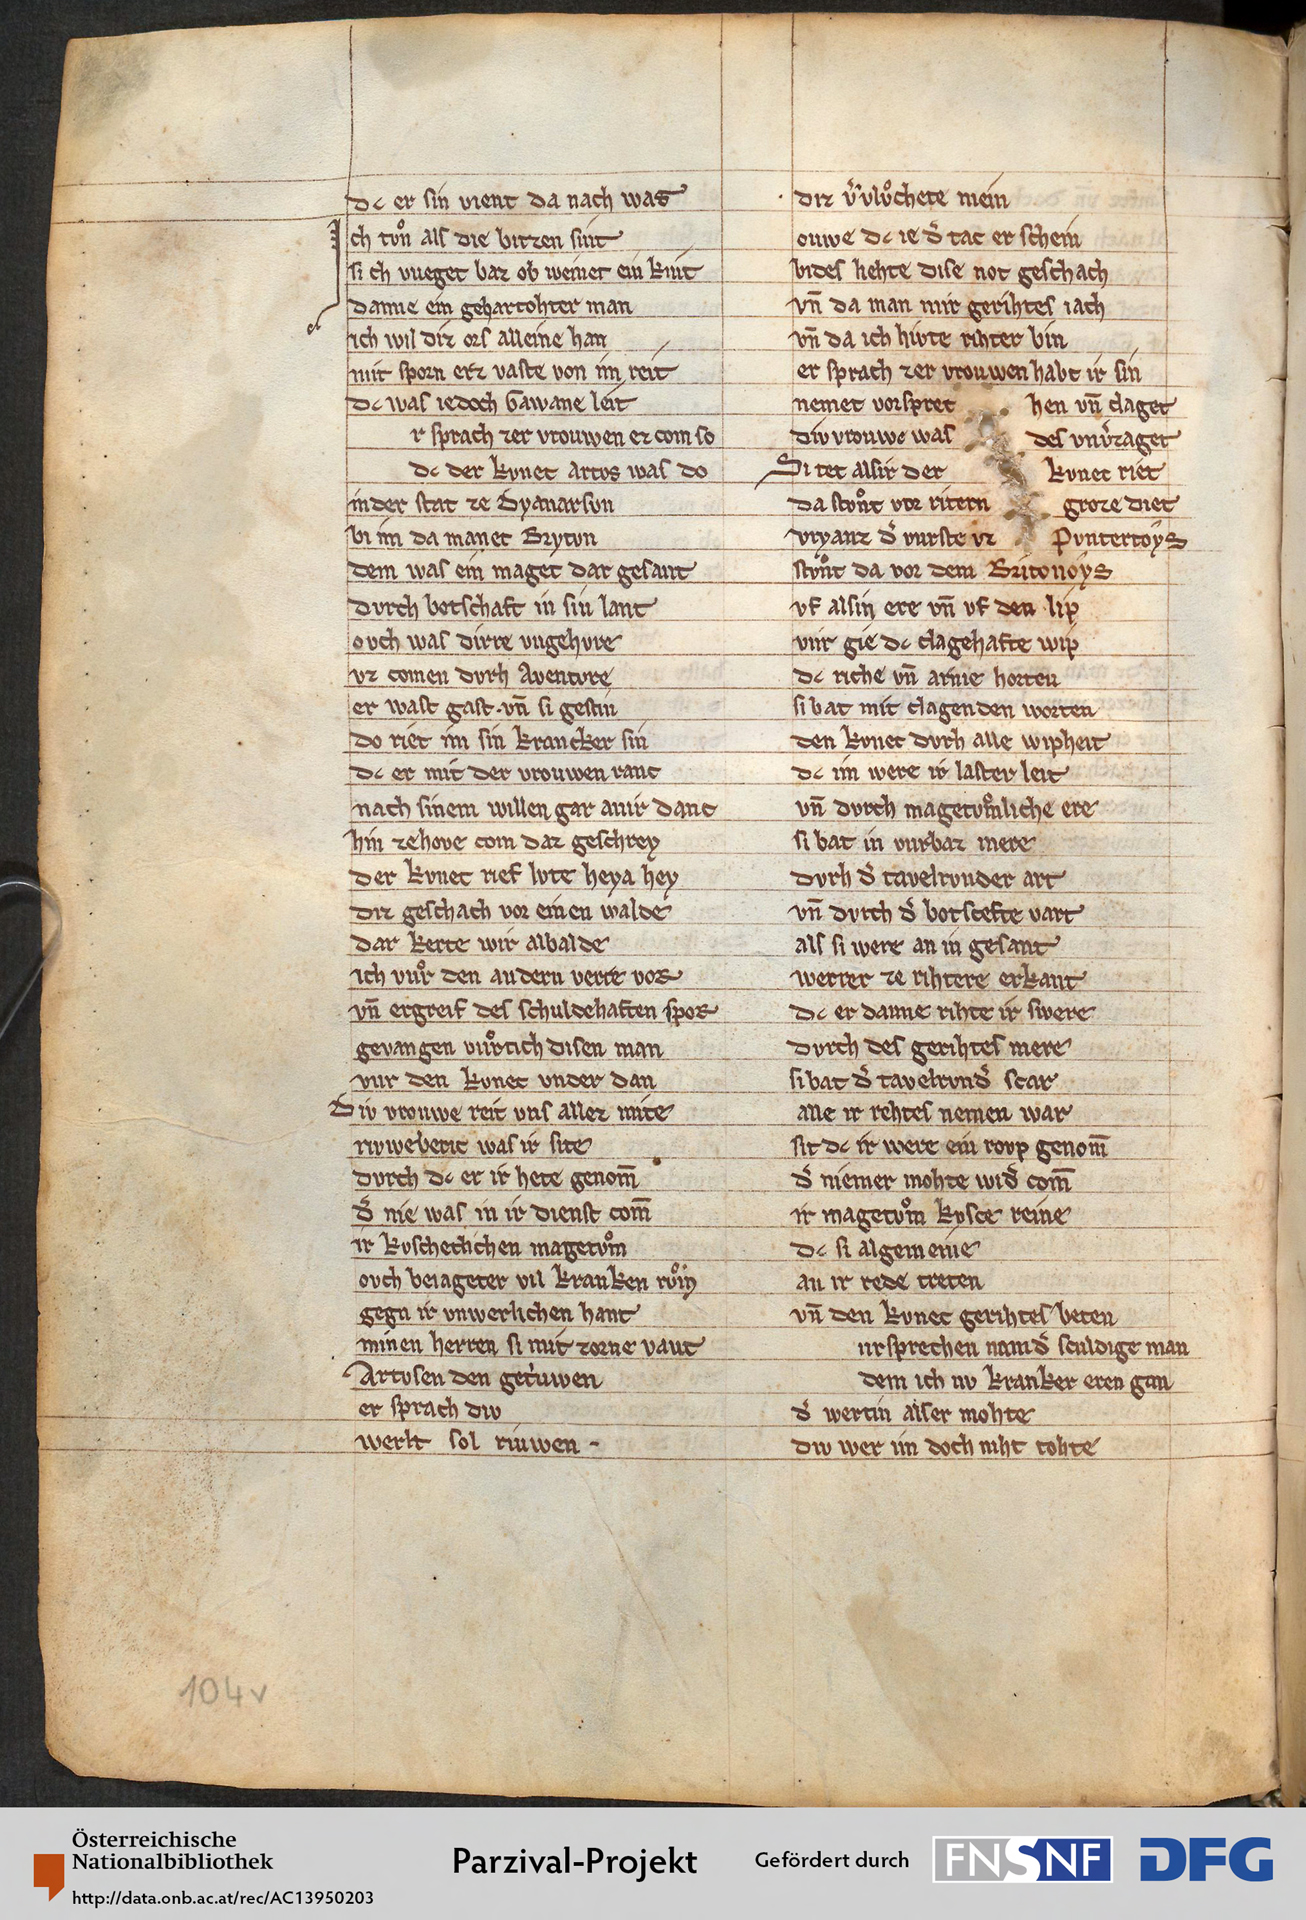 dc er sin vient da nach was
Ich tvͦn als die bitzen sint
si ch vueget baz ob weinet ein kint
danne ein gebartohter man
ich wil diz ors alleine han
mit sporn erz vaste von im reit
dc was iedoch Gawane leit
r sprach zer vrouwen ez com so
dc der kvnec Artvs was do
inder stat ze Dyanarsvn
bi im da manec Brytvn
dem was ein maget dar gesant
dvrch botschaft in sin lant
ovch was dirre vngehvre
vz comen dvrh Aventvre
er wast gast vn̄ si gestin
do riet im sin krancker sin
dc er mit der vrouwen ranc
nach sinem willen gar anir danc
hin zehove com daz geschrey
der kvnec rief lvte heya hey
diz geschach vor einen walde
dar kerte wir albalde
ich vuͦr den andern verre vor
vn̄ ergreif des schuldehaften spor
gevangen vuͦrtich disen man
vur den kvnec vnder dan
Div vrouwe reit vns allez mite
rivweberic was ir site
dvrch dc er ir hete genom̄
d͛ nie was in ir dienst com̄
ir kvschechchen magetvͦm
ovch beiageter vil kranken rvͦm
gegn ir vnwerlichen hant
minen herren si mit zorne vant
Artvsen den getruwen
er sprach div
werlt sol riuwen -
diz v͛vlvͦchete mein
ouwe dc ie d͛ tac er schein
bides liehte dise not geschach
vn̄ da man mir gerihtes iach
vn̄ da ich hivte rihter bin
er sprach zer vrouwen habt ir sin
nemet vorspret hen vn̄ claget
div vrouwe was des vnv͛zaget
Si tet alsir der kvnec riet
da stvͦnt vor ritern groze diet
vryanz d͛ vurste vz Pvntertoys
stvͦnt da vor dem Britonoys
vf alsin ere vn̄ vf den lip
vur gie dc clagehafte wip
dc riche vn̄ arme horten
si bat mit clagenden worten
den kvnec dvrh alle wipheit
dc im were ir laster leit
vn̄ dvrch magetvͦmliche ere
si bat in vurbaz mere
dvrh d͛ tavelrvnder art
vn̄ dvrch d͛ botscefte vart
als si were an in gesant
werrer ze rihtere erkant
dc er danne rihte ir swere
dvrch des gerihtes mere
si bat d͛ tavelrvnd͛ scar
alle ir rehtes nemen war
sit dc ir were ein rovp genom̄
d͛ niemer mohte wid͛ com̄
ir magetvͦm kvsce reine
dc si algemeine
an ir rede treten
vn̄ den kvnec gerihtes beten
ursprechen nam d͛ sculdige man
dem ich nv kranker eren gan
d͛ wertin alser mohte
div wer im doch niht tohte
104v
Österreichische
Nationalbibliothek
http://data.onb.ac.at/rec/AC13950203
Parzival-Projekt
Gefördert durch
FNSNF
DFG